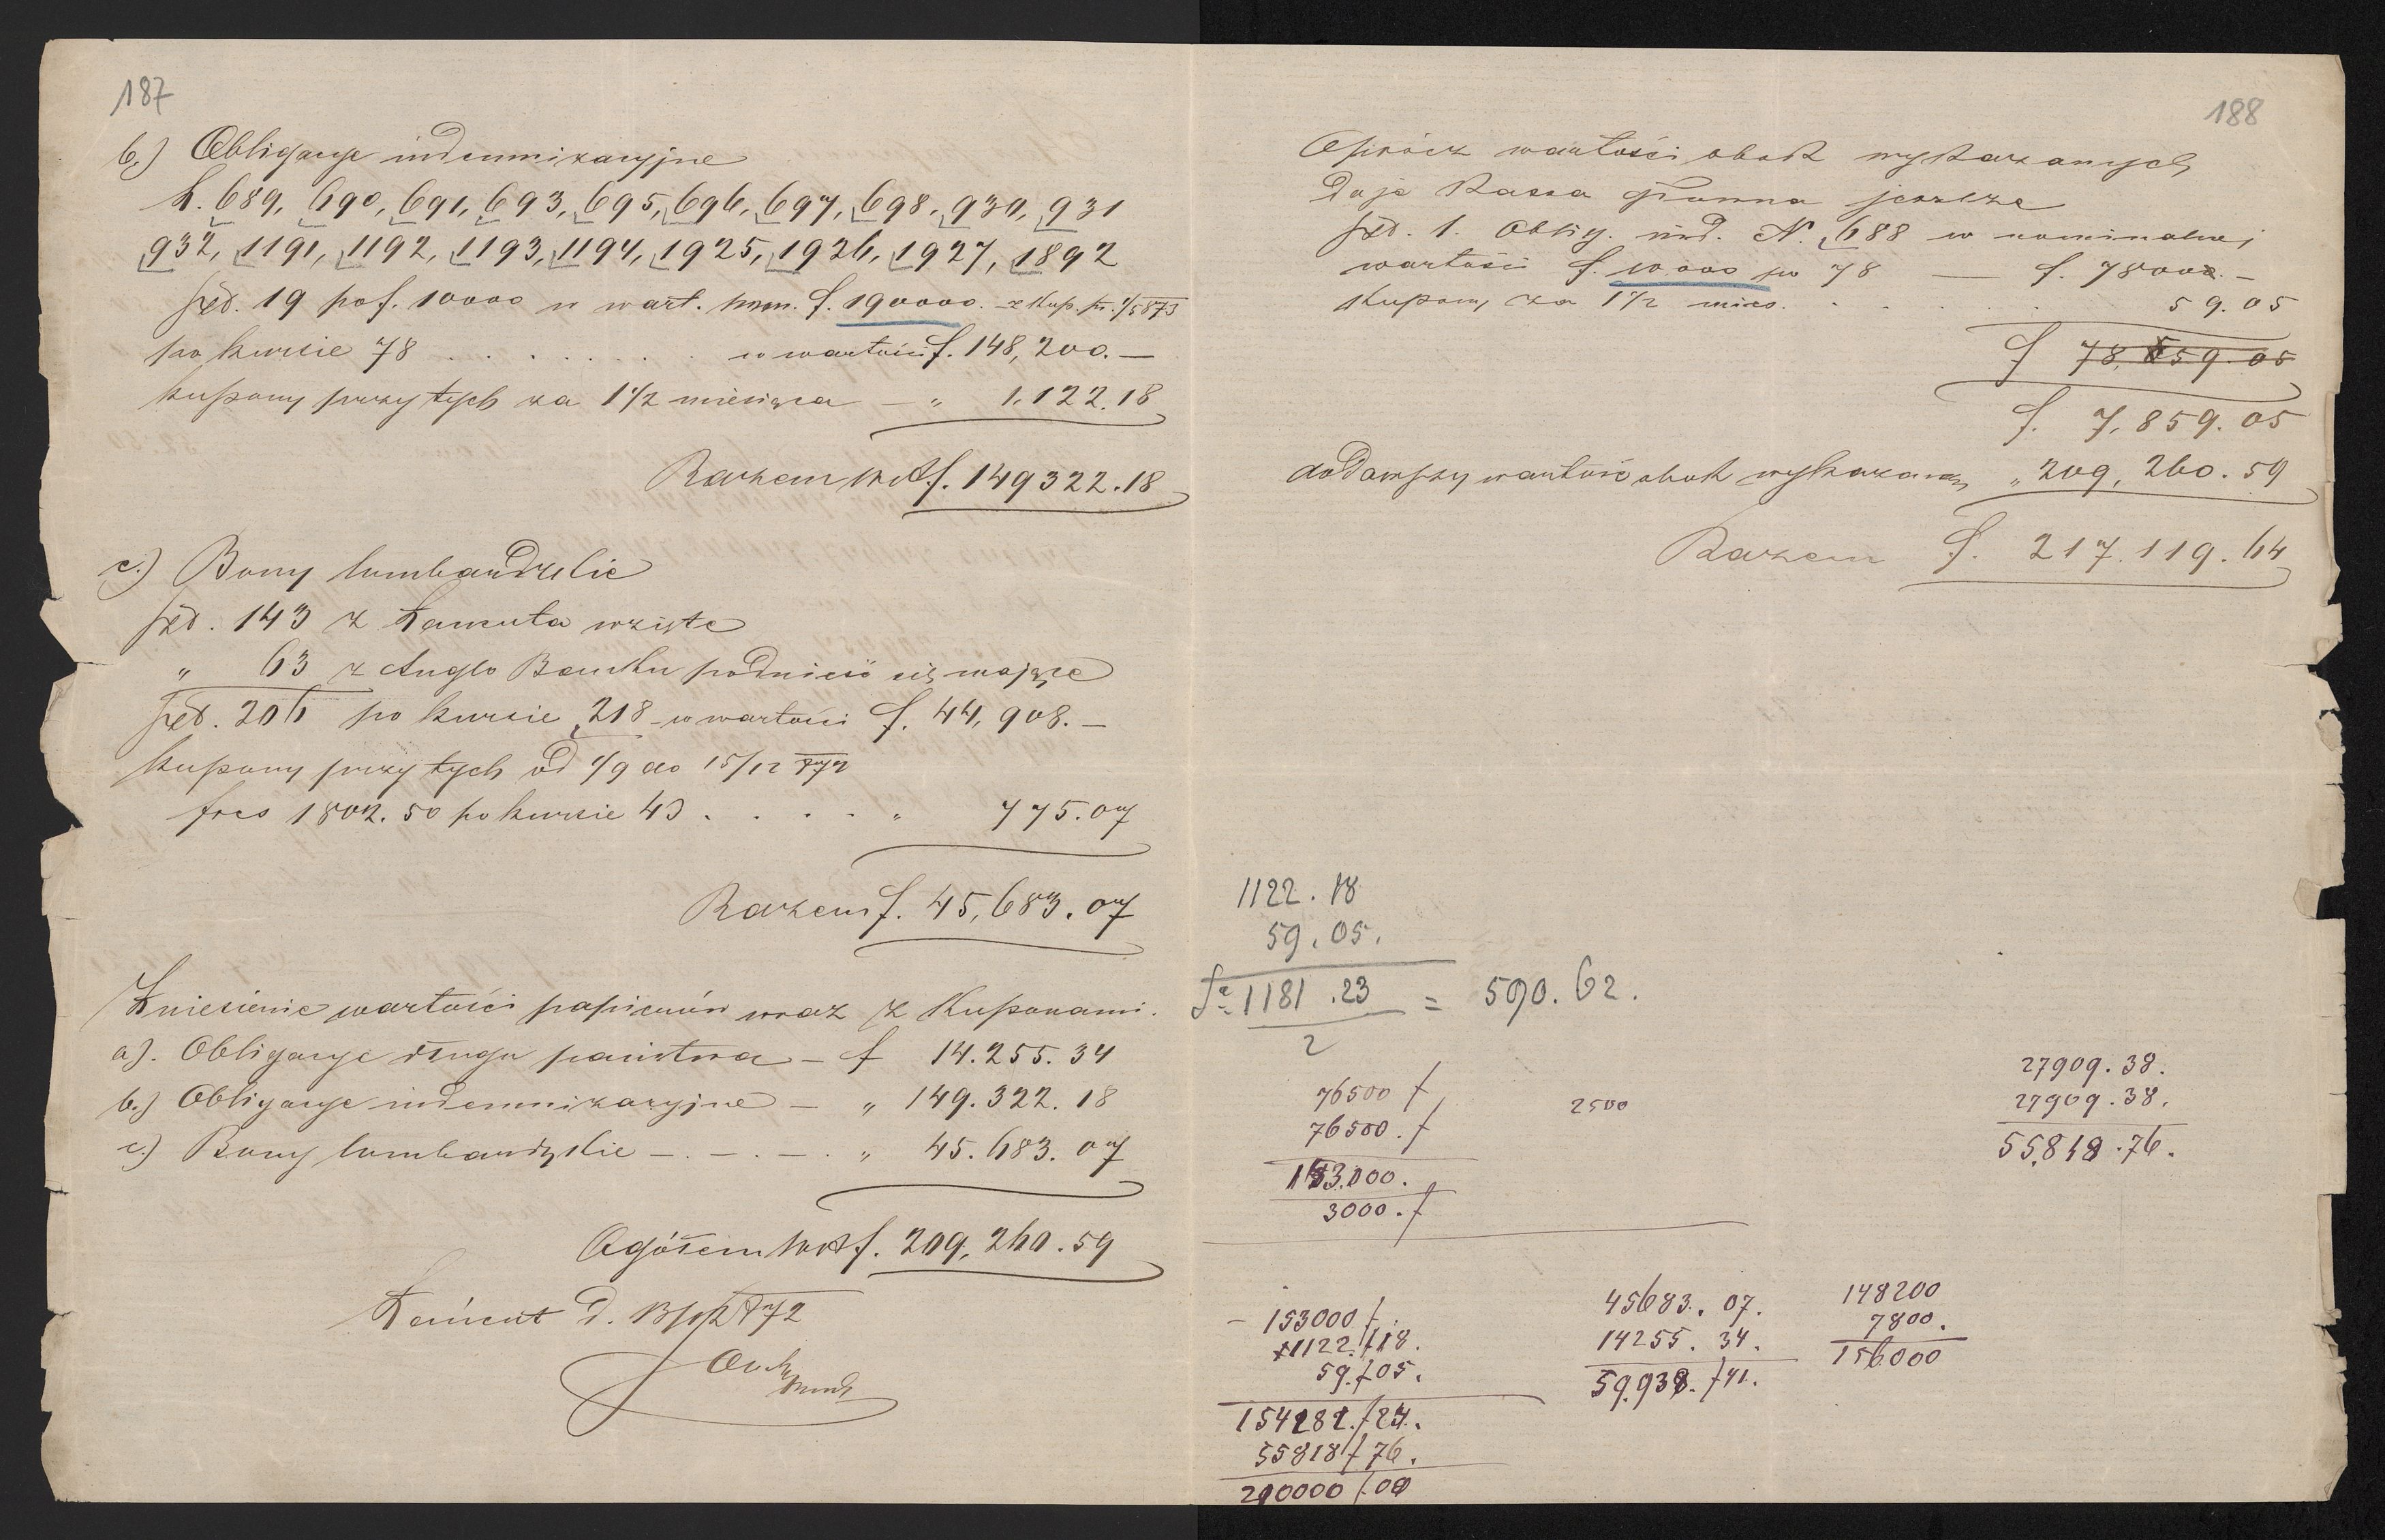 187
b.) Obligacye indemnizacyjne
L. 689, 690, 691, 693, 695, 696, 697, 698, 930, 931
932, 1191, 1192, 1193, 1194, 1925, 1926, 1927, 1892
szt. 19 po f. 10000 w wart. nom. f. 190000. z Kup. pr. 1/5 873
po kursie 78 . . . . . . . w wartości f. 148,200.—
kupony przy tych za 1 1/2 miesiąca — „ 1.122.18
Razem wA f. 149322.18
c.) Bony lombardzkie
szt. 143 z Łańcuta wzięte
„ 63 z Anglo Banku podnieść się mające
szt. 206 po kursie 218 w wartości f. 44,908.—
kupony przy tych od 1/9 do 15/12 872
frcs 1802.50 po kursie 43 . . . . „ 775.07
Razem f. 45,683.07
Zniesienie wartości papierów wraz z Kuponami.
a). Obligacye długu państwa — f 14.255.34
b.) Obligacye indemnizacyjne — „ 149.322.18
c.) Bony lombardzkie —.—.—. „ 45.683.07
Ogółem wA f. 209,260.59
Łańcut d. 13/12 872
188
Oprócz wartości obok wykazanych
daje Kassa główna jeszcze
szt. 1. Oblig. ind. N. 688 w nominalnej
wartości f. 10000 po 78 — f. 7800.—
Kupony za 1 1/2 mies. . . . . . 59.05
f 78,859.05
f. 7,859.05
dodawszy wartość obok wykazaną „ 209,260.59
Razem f. 217.119.64
1122.18
59.05.
1181.23 = 590.62.
2
76500 f
76500. f
153.000.
3000. f
2500
27909.38.
27909.38.
55.818.76.
— 153000 f.
1122. f 18.
59. f 05.
154181. f 24.
55818 f 76.
210000 f. 00
45683. 07.
14255. 34.
59.938. f 41.
148200
7800.
156000